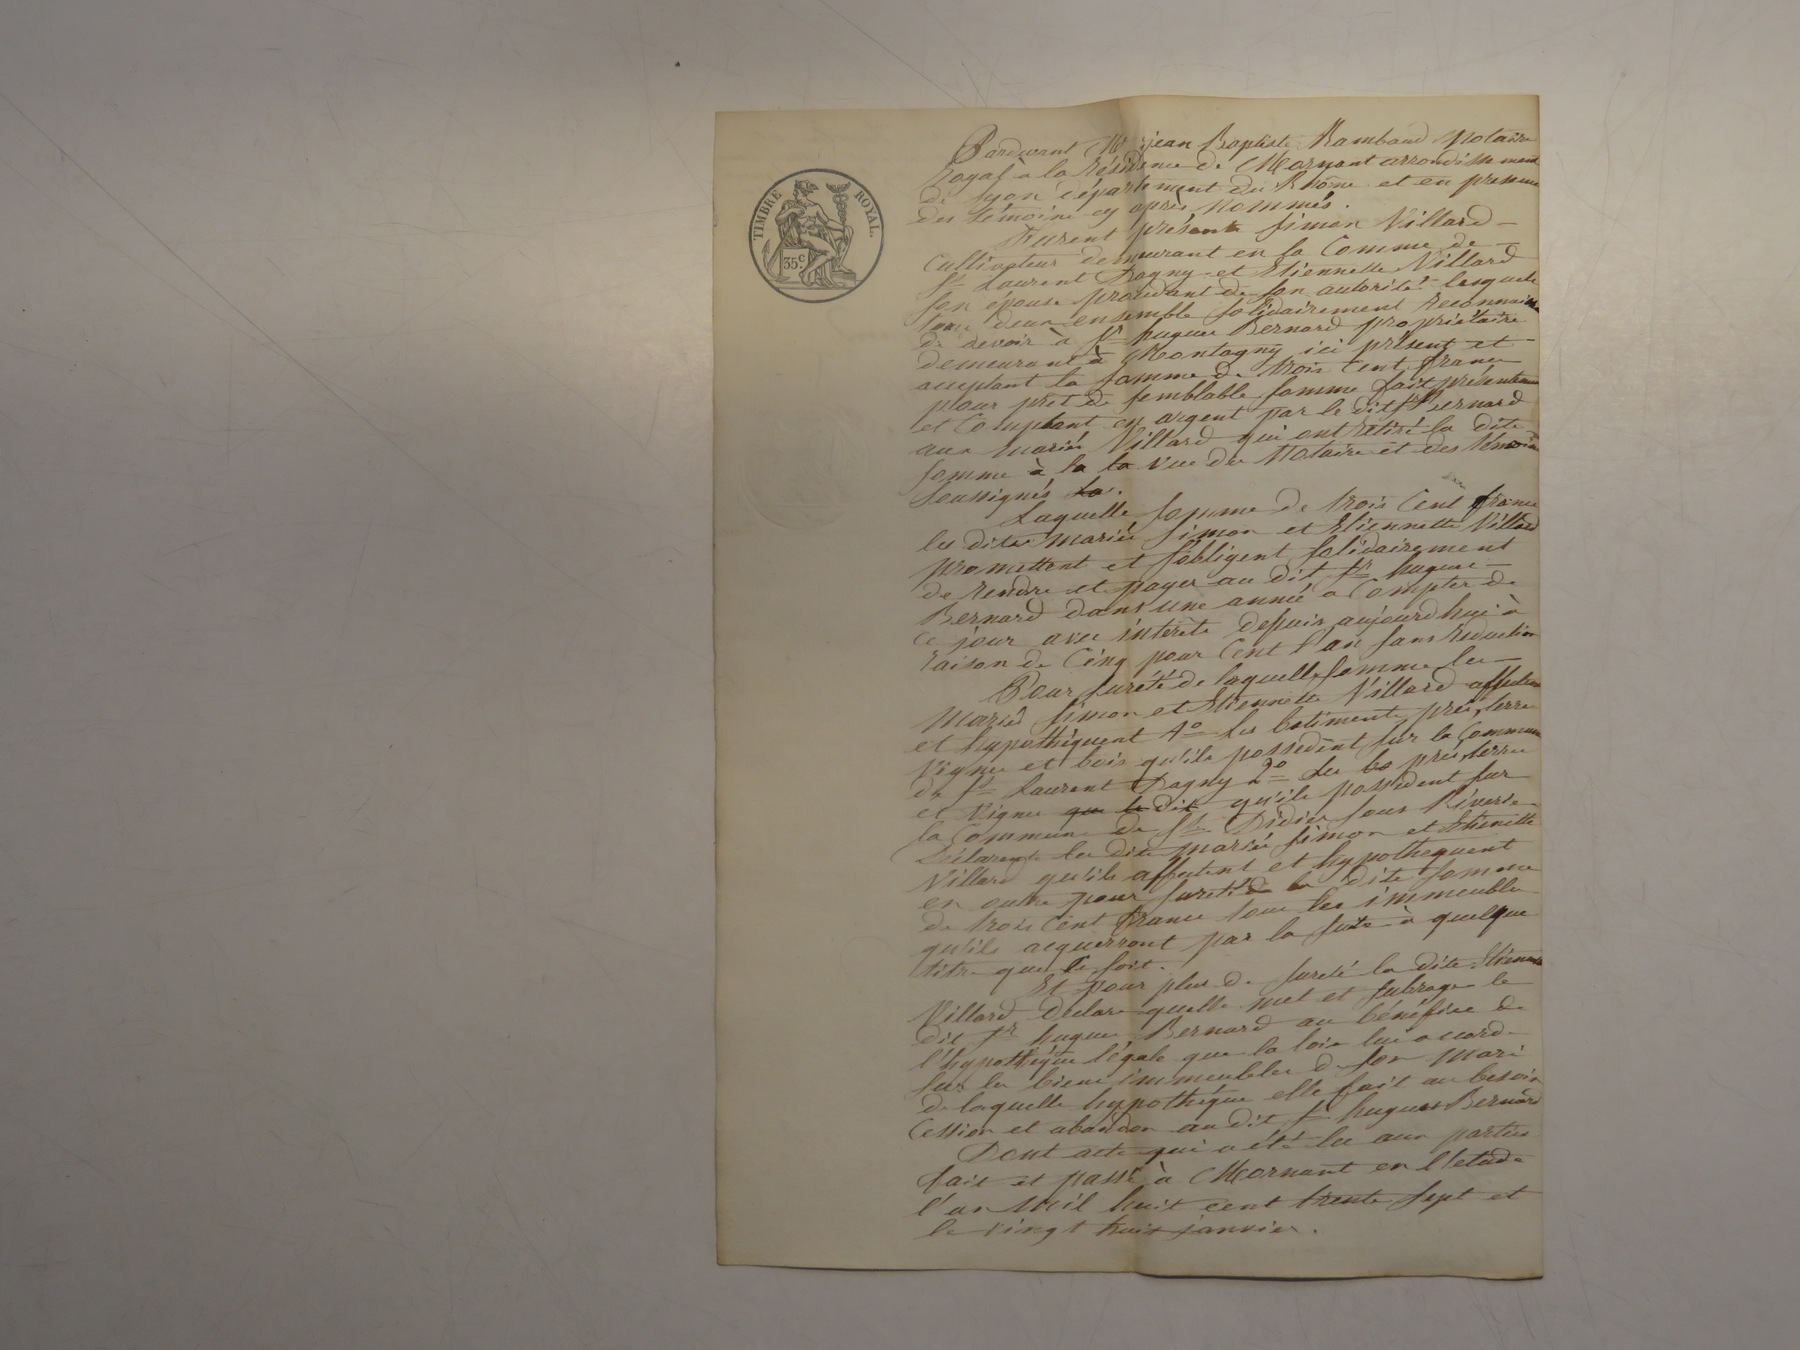 TIMBRE ROYAL.
35 c.
Pardevant Me jean Baptiste Rambaud Notaire
Royal à la résidence de Mornant arrondissement
de Lyon département du Rhône et en presence
des témoins cy après Nommés.
Furent présents Simon Villard
Cultivateur demeurant en la Commune de
St. Laurent Dagny et Etiennette Villard
son épouse procédant de son autorité lesquels
tous deux ensemble solidairement reconnaissent
de devoir à Sr hugues Bernard propriétaire
demeurant à Montagny ici présent et
acceptant la somme de trois Cent francs
pour prêt de semblable somme fait présentement
et Comptant en argent par le dit Sr Bernard
aux mariés Villard qui ont retiré la dite
somme à la la vue du Notaire et des témoins
soussignés la.
Laquelle somme de trois Cent francs
les dits mariés Simon et Etiennette Villard
promettent et s'obligent solidairement
de rendre et payer au dit Sr hugues
Bernard dans une année a Compter de
ce jour avec intérêts depuis aujourdhui à
raison de Cinq pour Cent l'an sans réduction
Pour sureté de laquelle somme les
Mariés Simon et Etiennette Villard affectent
et hypothéquent 1o les batiments, prés, terre
vigne et bois qu'ils possedent sur la Commune
de St Laurent Dagny 2o les prés, terre
et vigne que le dit qu'ils possedent sur
la Commune de St Didier sous Riverie
Déclarent les dits mariés Simon et Etienette
Villard qu'ils affectent et hypothequent
en outre pour sureté de la dite somme
de trois Cent francs tous les immeubles
qu'ils acquerront par la suite à quelque
titre que Ce soit.
Et pour plus de sureté la dite Etiennette
Villard déclare quelle met et subroge le
dit Sr hugues Bernard au bénéfice de
l'hypothèque légale que la loix lui accorde
sur les biens immeubles de son mari
de laquelle hypothèque elle fait au besoin
Cession et abandon au dit Sr hugues Bernard
Dont acte qui a été lu aux parties
fait et passé à Mornant en l'étude
l'an Mil huit cent trente sept et
le vingt huit janvier.